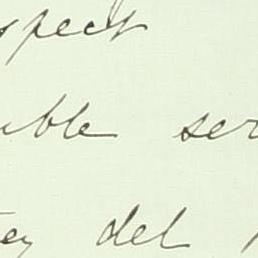 spect
uble ser
ey del